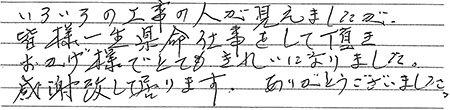 いろいろの工事の人が見えましたが、
皆様一生県命仕事をして頂き
おかげ様でとてもきれいになりました。
感謝致して居ります。 ありがとうございました。